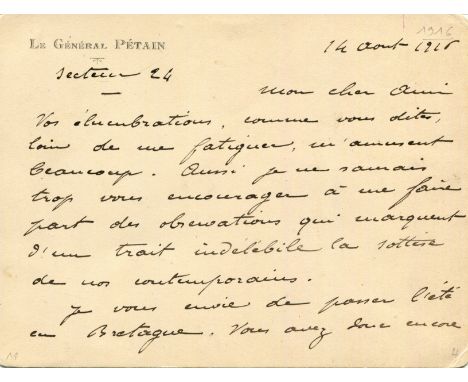 1916
LE GÉNÉRAL PÉTAIN
14 Aout 1916
Secteur 24
Mon cher Ami
Vos élucubrations, comme vous dites,
loin de me fatiguer, m'amusent
beaucoup. Aussi je ne saurais
trop vous encourager à me faire
part des observations qui marquent
d'un trait indélébile la sottise
de nos contemporains.
Je vous envie de passer l'été
en Bretagne. Vous avez donc encore